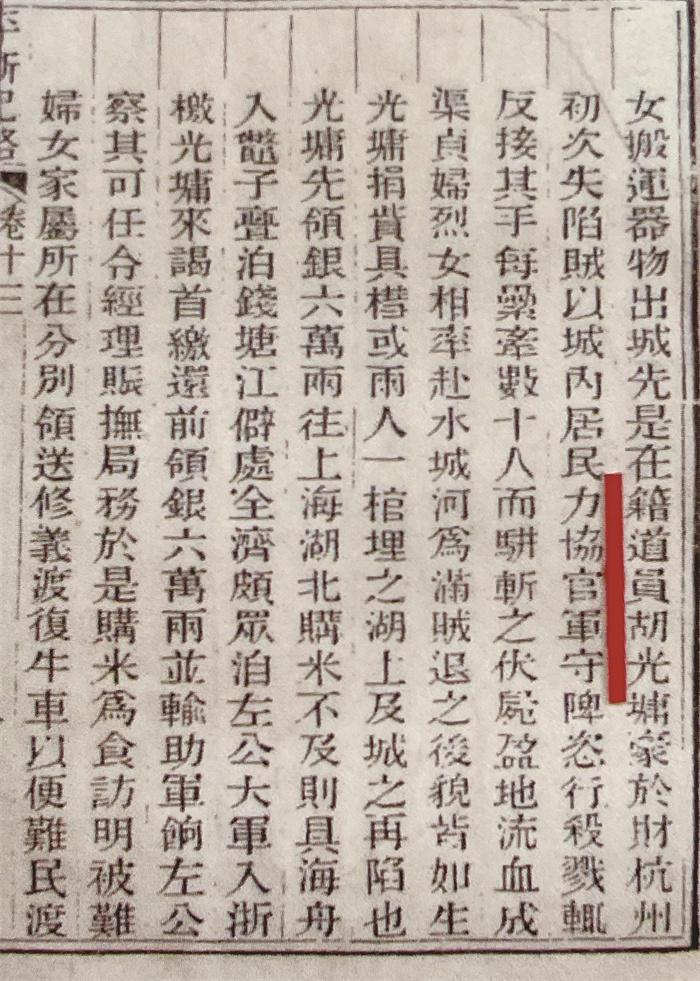 女搬運器物出城先是在籍道員胡光墉豪於財杭州
初次失陷賊以城內居民力協官軍守陴恣行殺戮輒
反接其手每纍牽數十人而駢斬之伏屍盈地流血成
渠貞婦烈女相率赴水城河為滿賊退之後貌皆如生
光墉捐貲具槥或兩人一棺埋之湖上及城之再陷也
光墉先領銀六萬兩往上海湖北購米不及則具海舟
入鼈子亹泊錢塘江僻處全濟頗眾泊左公大軍入浙
檄光墉來謁首繳還前領銀六萬兩並輸助軍餉左公
察其可任令經理賑撫局務於是購米為食訪明被難
婦女家屬所在分別領送修義渡復牛車以便難民渡
平浙紀略 卷十三